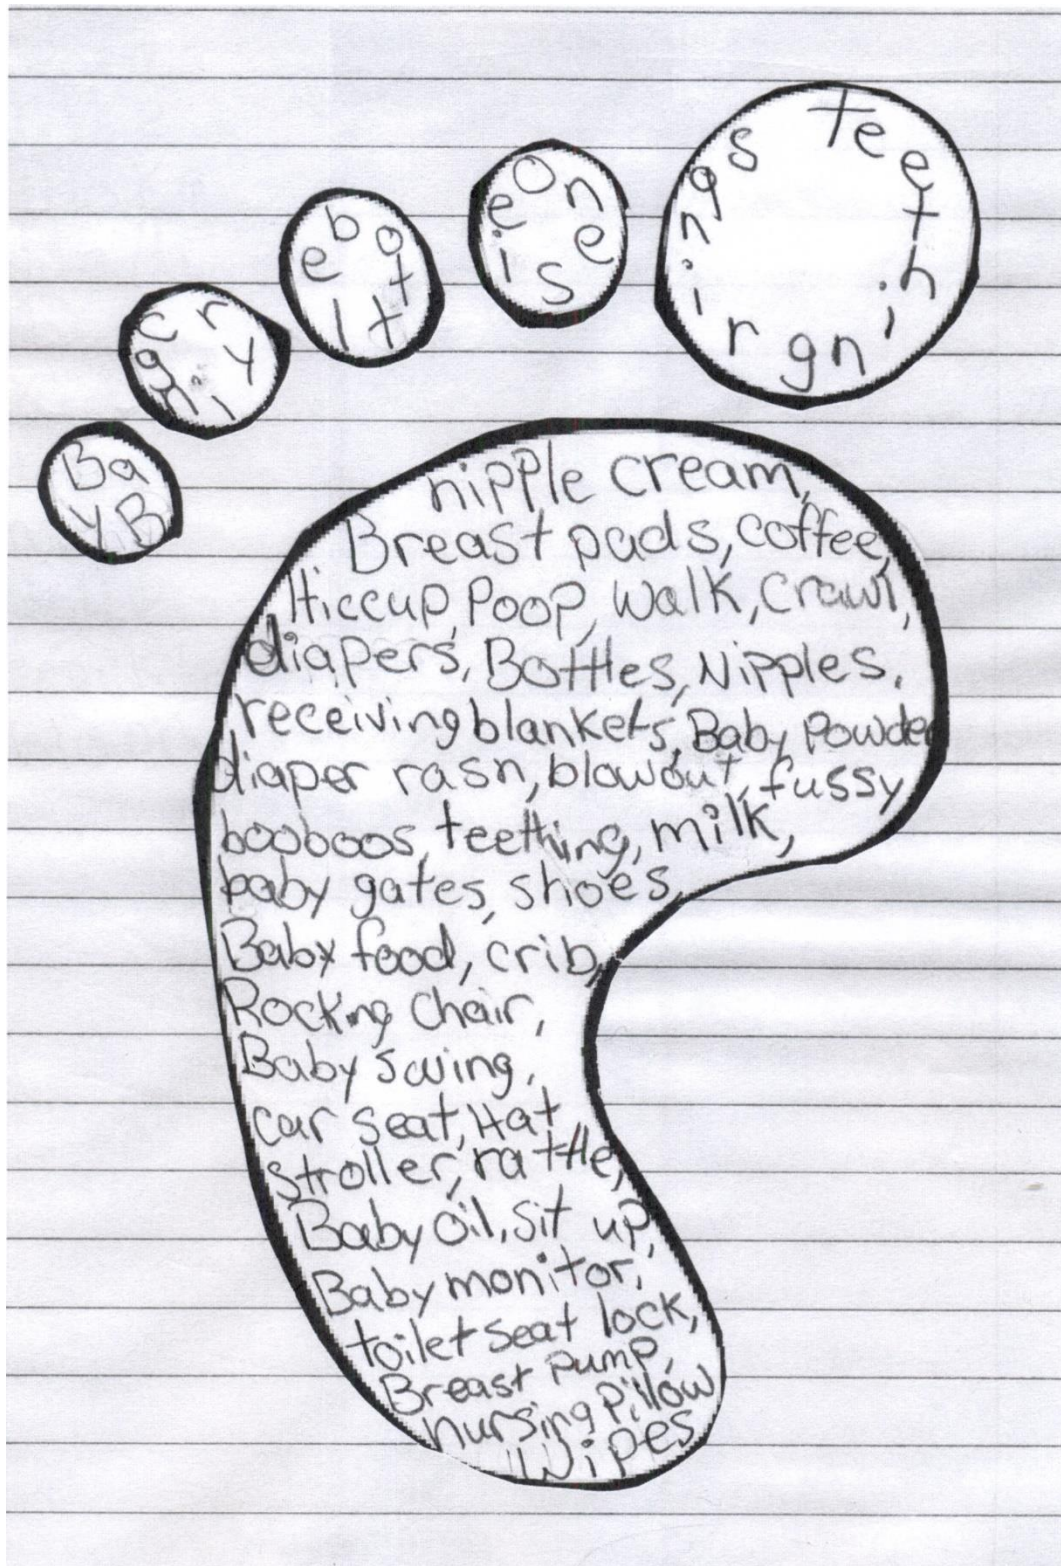 teethingrings
onesie
bottle
crying
BayB
nipple cream,
Breast pads, coffee,
Hiccup, Poop, Walk, Crawl,
diapers, Bottles, Nipples,
receiving blankets, Baby Powder
diaper rash, blowout, fussy
booboos, teething, milk,
baby gates, shoes,
Baby food, crib,
Rocking Chair,
Baby swing,
car seat, Hat
stroller, rattle,
Baby oil, sit up,
Baby monitor,
toilet seat lock,
Breast pump,
nursing pillow
Wipes